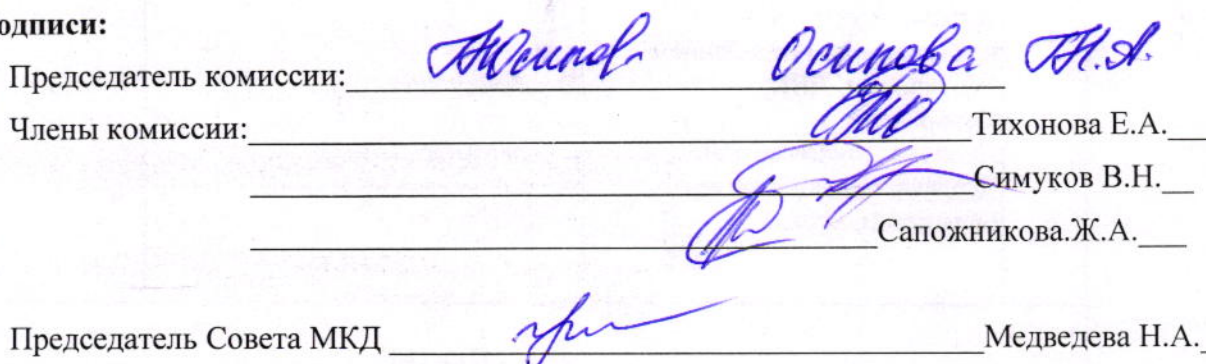 одписи:
Председатель комиссии: Осипова Т.Н.А.
Члены комиссии: Тихонова Е.А.
Симуков В.Н.
Сапожникова.Ж.А.
Председатель Совета МКД Медведева Н.А.